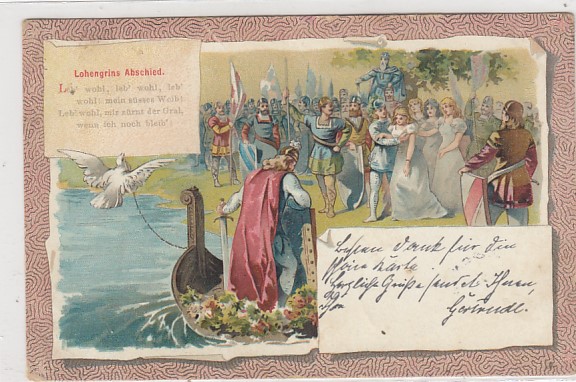 Lohengrins Abschied.
Leb' wohl, leb' wohl, leb'
wohl! mein süsses Weib!
Leb' wohl, mir zürnt der Gral,
wenn ich noch bleib'!
Besten Dank für die
schöne Karte.
Herzliche Grüße sendet Ihnen,
Gertrude.